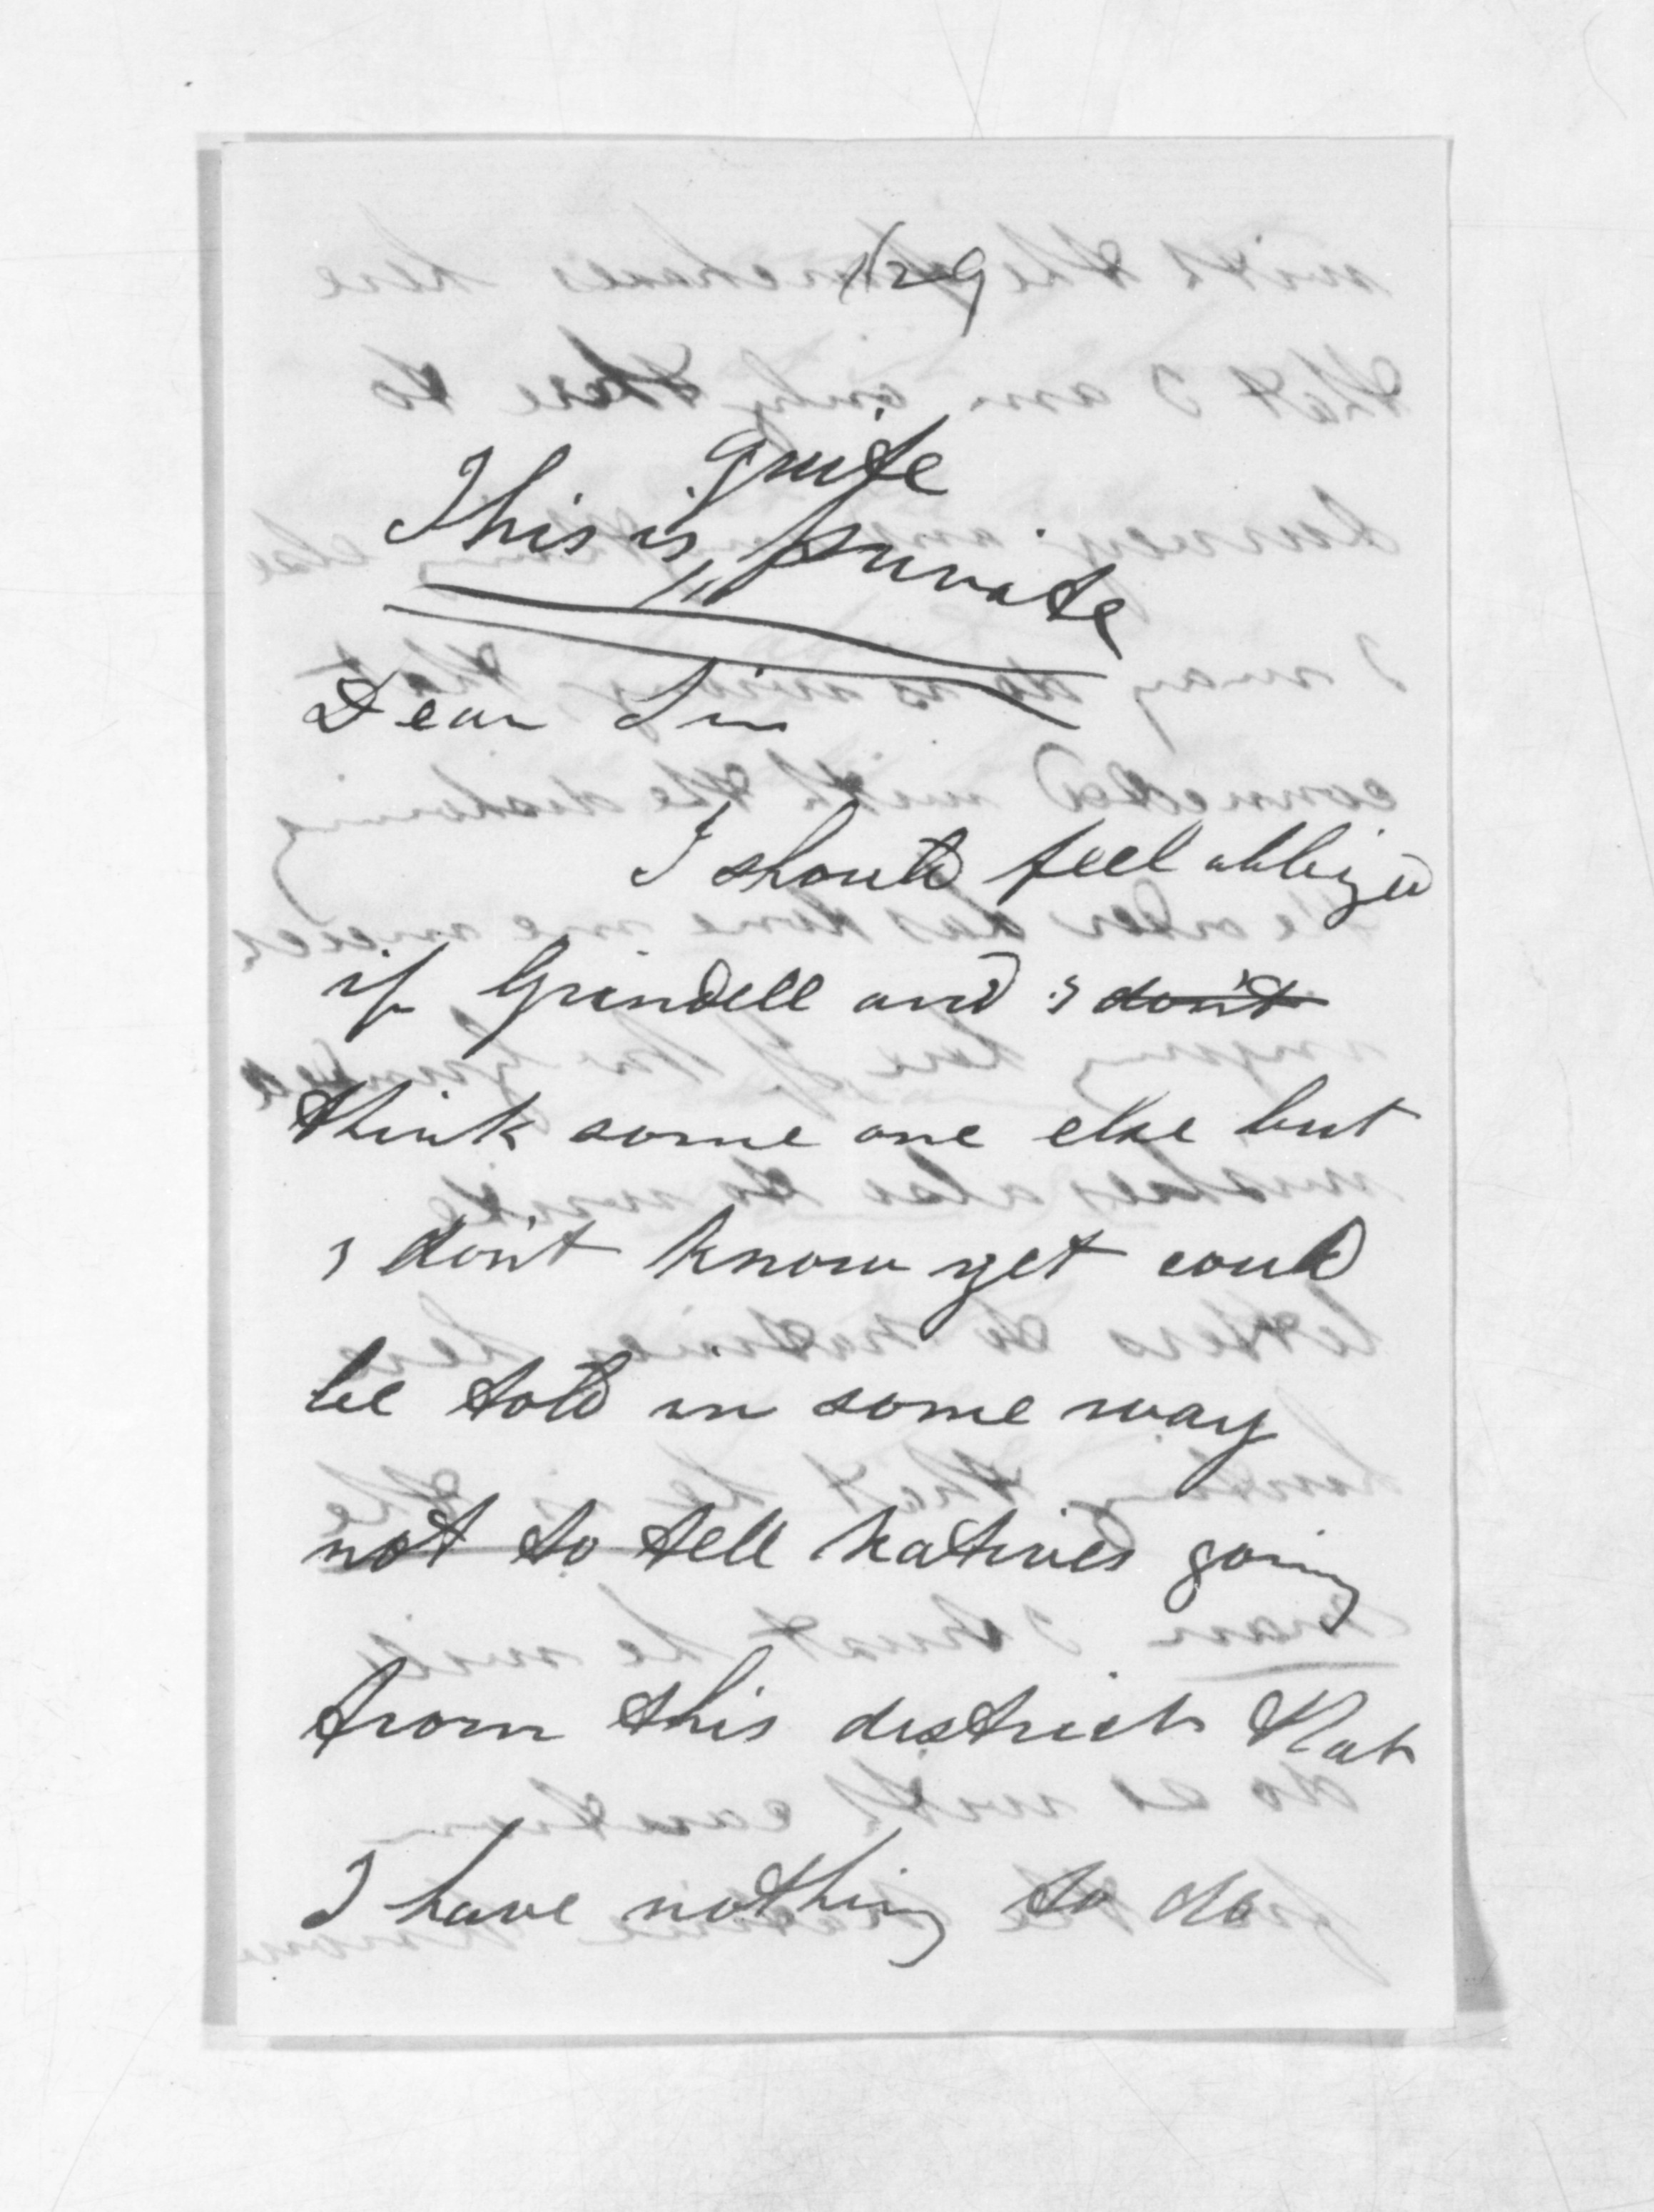 1/29
quite
This is private
Dear Sir
I should feel obliged
if Grindell and I don't
think some one else but
I don't know yet could
be told in some way
not to tell natives going
from this district that
I have nothing to do